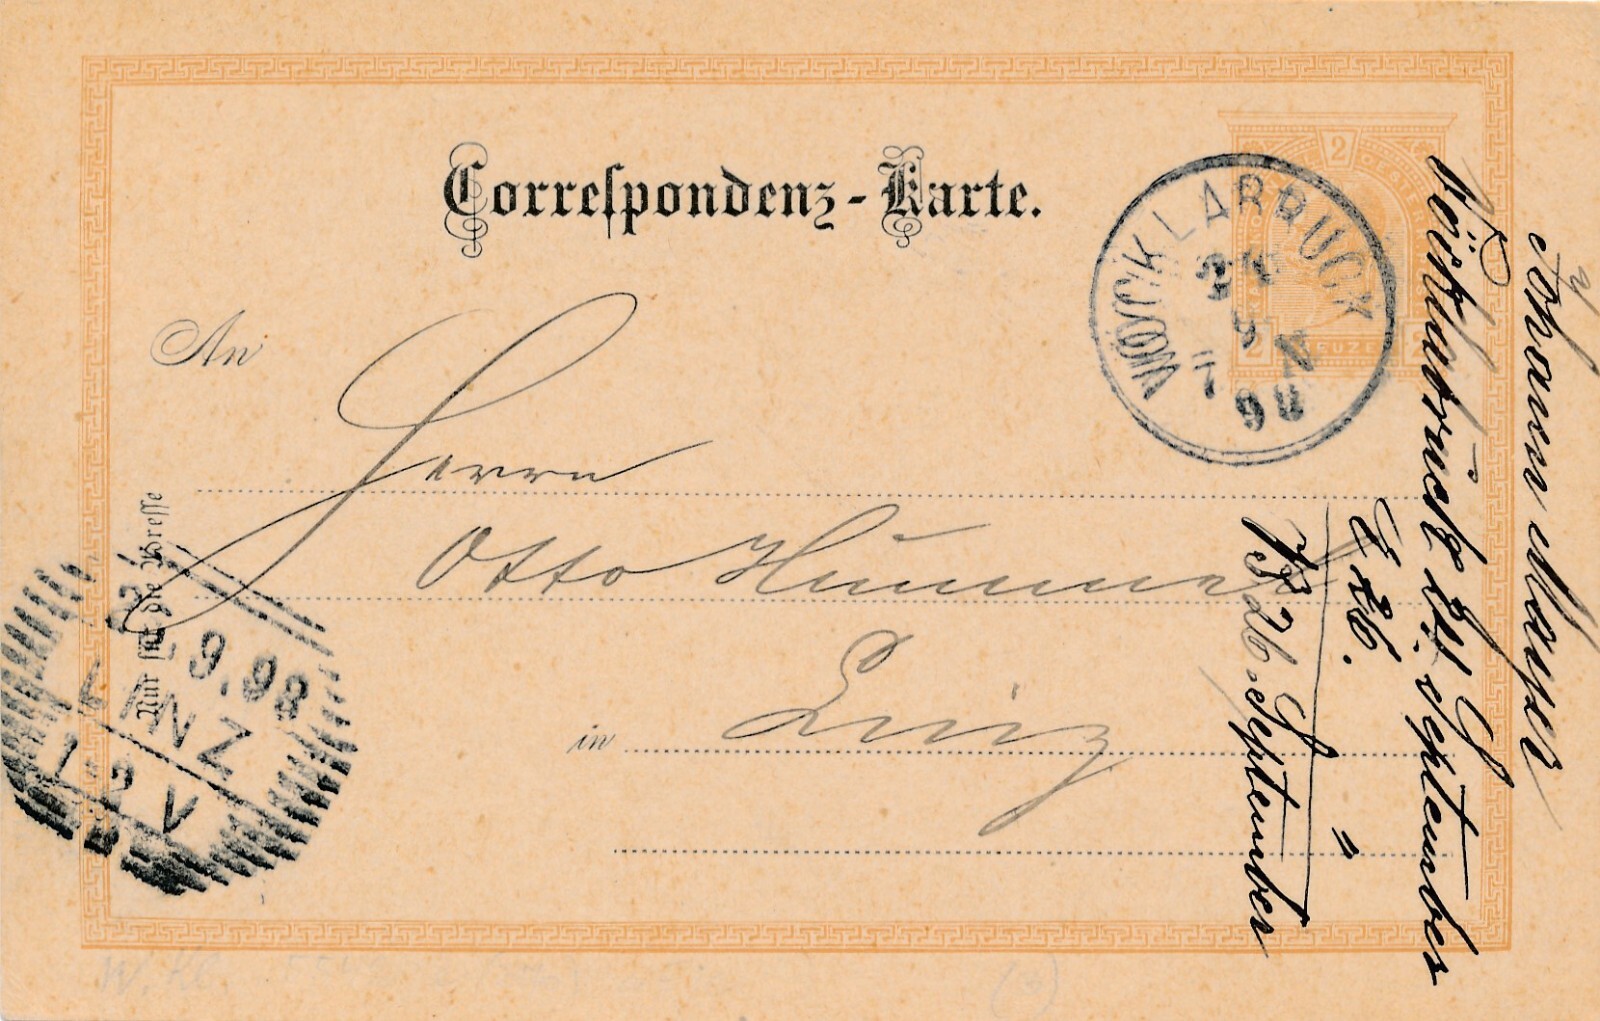 Correspondenz-Karte.
An
Herrn
Otto Hummel
in Linz
Nur für die Adresse
VÖCKLABRUCK
98
9.98
LINZ
2
2
KREUZER
Johann Mayer
Vöcklabruck 25. September
E 26. "
B 26 September